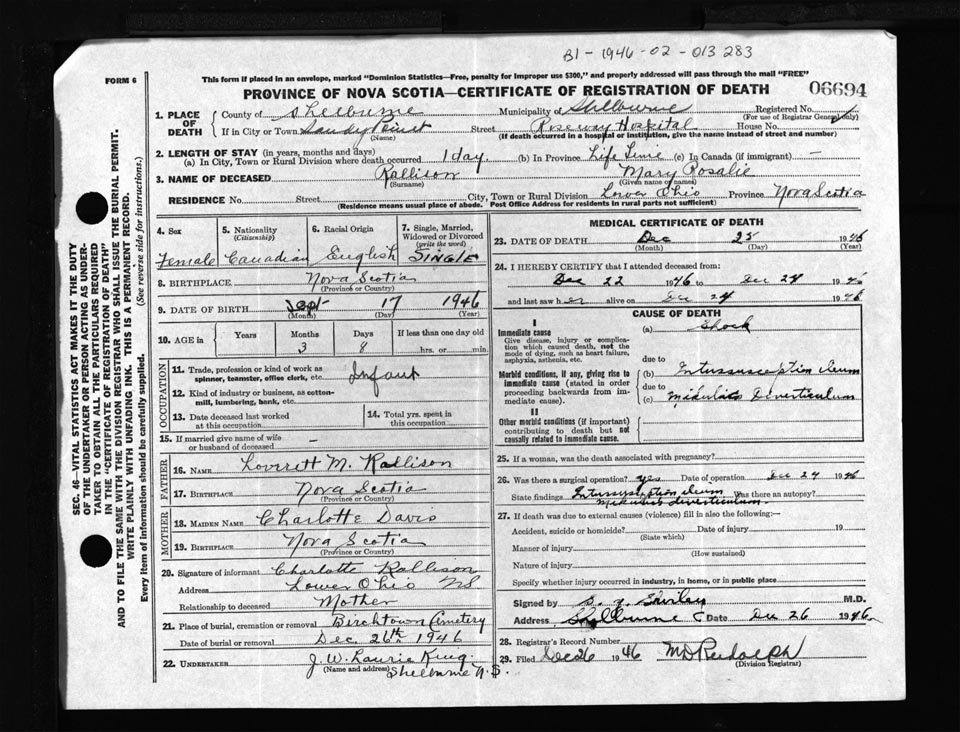 B1-1946-02-013283
FORM 6
This form if placed in an envelope, marked "Dominion Statistics—Free, penalty for improper use $300," and properly addressed will pass through the mail "FREE"
PROVINCE OF NOVA SCOTIA—CERTIFICATE OF REGISTRATION OF DEATH 06694
1. PLACE OF DEATH County of Shelburne Municipality of Shelburne Registered No.
(For use of Registrar General only)
If in City or Town Sandy Point Street Roseway Hospital House No.
(Name) (If death occurred in a hospital or institution, give the name instead of street and number)
2. LENGTH OF STAY (in years, months and days)
(a) In City, Town or Rural Division where death occurred 1 day (b) In Province Life Time (c) In Canada (if immigrant) —
3. NAME OF DECEASED Rallison Mary Rosalie
(Surname) (Given name or names)
RESIDENCE No. Street City, Town or Rural Division Lower Ohio Province Nova Scotia
(Residence means usual place of abode. Post Office Address for residents in rural parts not sufficient)
4. Sex 5. Nationality (Citizenship) 6. Racial Origin 7. Single, Married, Widowed or Divorced (write the word)
Female Canadian English SINGLE
8. BIRTHPLACE Nova Scotia
(Province or Country)
9. DATE OF BIRTH Sept 17 1946
(Month) (Day) (Year)
10. AGE in Years Months Days If less than one day old
3 8 hrs. or min.
OCCUPATION
11. Trade, profession or kind of work as spinner, teamster, office clerk, etc. Infant
12. Kind of industry or business, as cotton-mill, lumbering, bank, etc.
13. Date deceased last worked at this occupation
14. Total yrs. spent in this occupation
15. If married give name of wife or husband of deceased —
FATHER
16. NAME Loverett M. Rallison
17. BIRTHPLACE Nova Scotia
(Province or Country)
MOTHER
18. MAIDEN NAME Charlotte Davis
19. BIRTHPLACE Nova Scotia
(Province or Country)
20. Signature of informant Charlotte Rallison
Address Lower Ohio NS
Relationship to deceased Mother
21. Place of burial, cremation or removal Birchtown Cemetery
Date of burial or removal Dec. 26th 1946
22. UNDERTAKER J. W. Laurie King.
(Name and address) Shelburne N.S.
MEDICAL CERTIFICATE OF DEATH
23. DATE OF DEATH Dec 25 1946
(Month) (Day) (Year)
24. I HEREBY CERTIFY that I attended deceased from:
Dec 22 1946 to Dec 24 1946
and last saw her alive on Dec 24 1946
CAUSE OF DEATH
I
Immediate cause (a) Shock
Give disease, injury or complication which caused death, not the mode of dying, such as heart failure, asphyxia, asthenia, etc.
due to
Morbid conditions, if any, giving rise to immediate cause (stated in order proceeding backwards from immediate cause). (b) Intussusception Ileum
due to
(c) Diverticulum
II
Other morbid conditions (if important) contributing to death but not causally related to immediate cause.
25. If a woman, was the death associated with pregnancy?
26. Was there a surgical operation? yes Date of operation Dec 24 1946
State findings Intussusception Ileum Was there an autopsy?
diverticulum
27. If death was due to external causes (violence) fill in also the following:—
Accident, suicide or homicide? Date of injury 19
(State which)
Manner of injury
(How sustained)
Nature of injury
Specify whether injury occurred in industry, in home, or in public place
Signed by M.D.
Address Shelburne Date Dec 26 1946
28. Registrar's Record Number
29. Filed Dec 26 1946 M D Rudolph
(Division Registrar)
SEC. 46—VITAL STATISTICS ACT MAKES IT THE DUTY
OF THE UNDERTAKER OR PERSON ACTING AS UNDER-
TAKER TO OBTAIN ALL THE PARTICULARS REQUIRED
IN THE "CERTIFICATE OF REGISTRATION OF DEATH"
AND TO FILE THE SAME WITH THE DIVISION REGISTRAR WHO SHALL ISSUE THE BURIAL PERMIT.
WRITE PLAINLY WITH UNFADING INK. THIS IS A PERMANENT RECORD.
Every item of information should be carefully supplied. (See reverse side for instructions.)